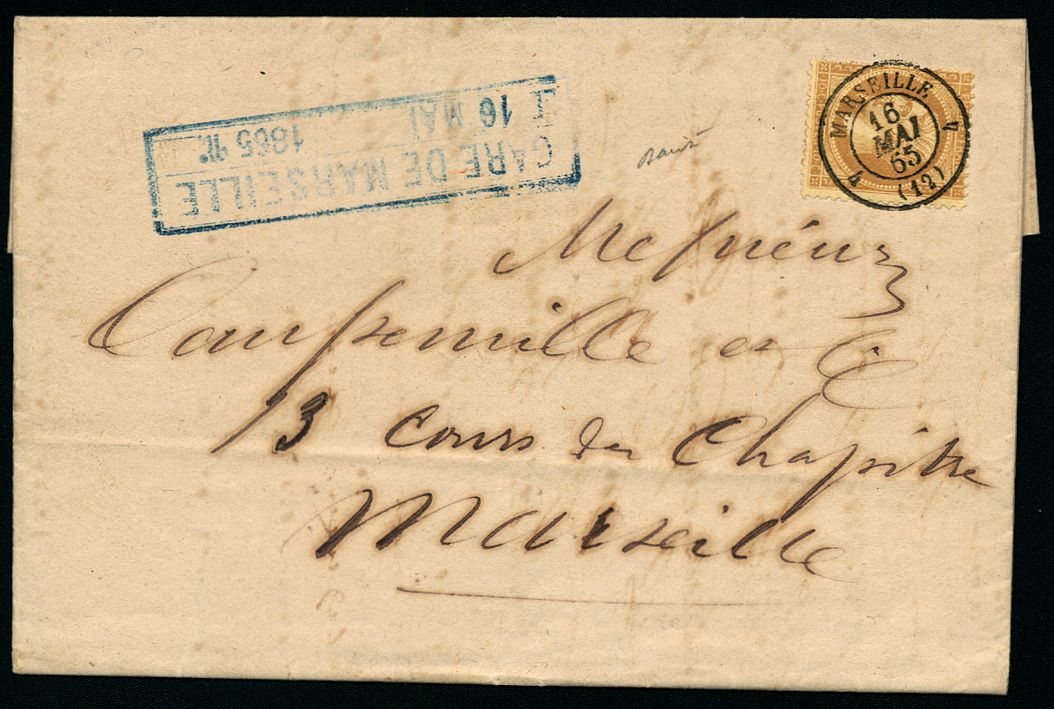 MARSEILLE
16
MAI
65
(12)
4 4
GARE DE MARSEILLE
16 MAI
1865
Messieurs
et Cie
13 Cours du Chapitre
Marseille